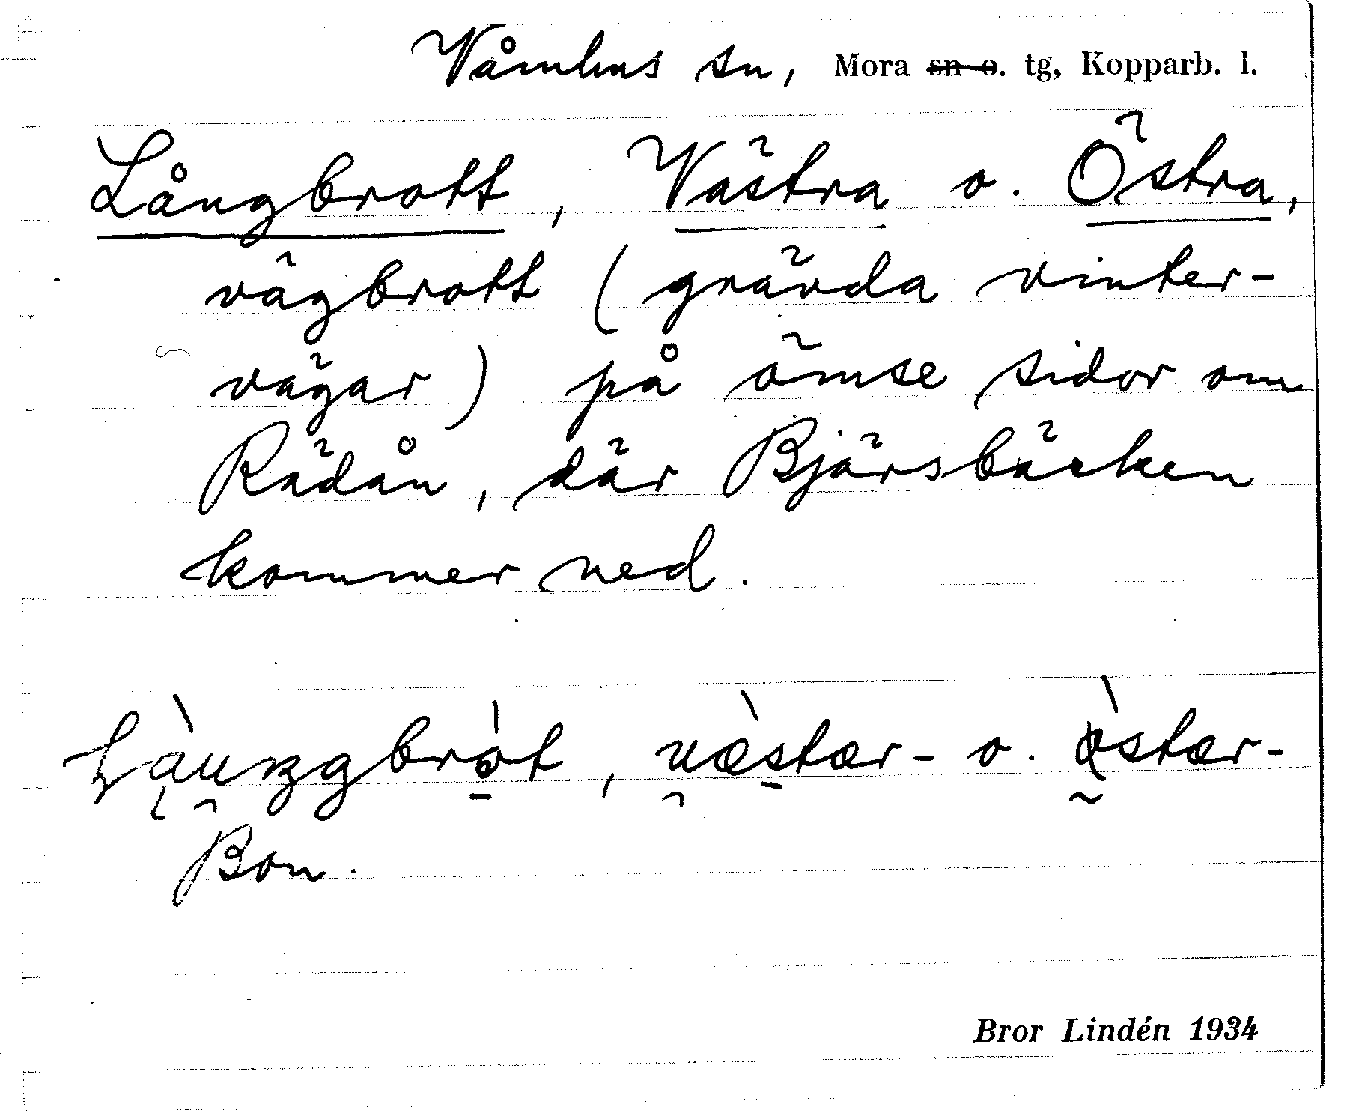 Våmhus sn, Mora sn o. tg, Kopparb. l.
Långbrott, Västra o. Östra,
vägbrott (grävda vinter-
vägar) på ömse sidor om
Rädån, där Bjärsbäcken
kommer ned.
o. 
Bon.
Bror Lindén 1934